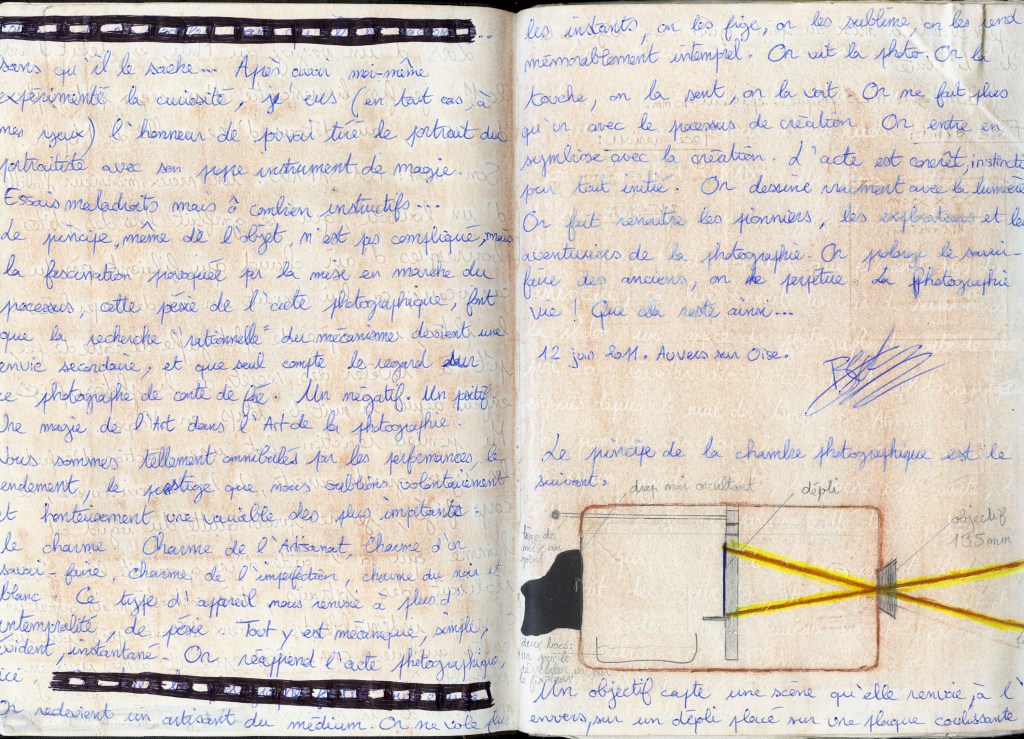 sans qu'il le sache... Après avoir moi-même
expérimenté la curiosité, j'eus (en tout cas, à
mes yeux) l'honneur de pouvoir tirer le portrait du
portraitiste avec son propre instrument de magie.
Essais maladroits mais ô combien instructifs...
Le principe, même de l'objet, n'est pas compliqué, mais
la fascination provoquée par la mise en marche du
processus, cette poésie de l'acte photographique, font
que la recherche "rationnelle" du mécanisme devient une
envie secondaire, et que seul compte le regard sur
ce photographe de conte de fée. Un négatif. Un positif.
Une magie de l'Art dans l'Art de la photographie.
Nous sommes tellement annibilés par les performances, le
rendement, le prestige que nous oublions volontairement
et honteusement une variable des plus importante :
le charme. Charme de l'Artisanat, charme d'un
savoir-faire, charme de l'imperfection, charme du noir et
blanc. Ce type d'appareil nous renvoie à plus d'
intemporalité, de poésie. Tout y est mécanique, simple,
évident, instantané. On réapprend l'acte photographique,
ici.
On redevient un artisan du médium. On ne vole plus
les instants, on les fige, on les sublime, on les rend
mémorablement intemporel. On vit la photo. On la
touche, on la sent, on la voit. On ne fait plus
qu'un avec le processus de création. On entre en
symbiose avec la création. L'acte est concrêt, instinctif
pour tout initié. On dessine vraiment avec la lumière.
On fait renaître les pionniers, les explorateurs et les
aventuriers de la photographie. On prolonge le savoir-
faire des anciens, on le perpétue. La photographie
vie ! Que cela reste ainsi...
12 juin 2011. Auvers sur Oise.
Le principe de la chambre photographique est le
suivant :
drap noir occultant
dépli
objectif
135mm
tirage de
mise au
point
deux bacs:
un pour le
révélateur un pour
le fixateur
Un objectif capte une scène qu'elle renvoie, à l'
envers, sur un dépli placé sur une plaque coulissante